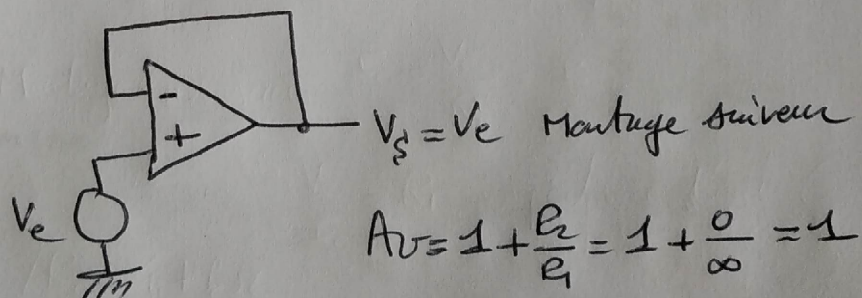 -
+
Vs = Ve Montage suiveur
Ve
Av = 1 + R2/R1 = 1 + 0/∞ = 1